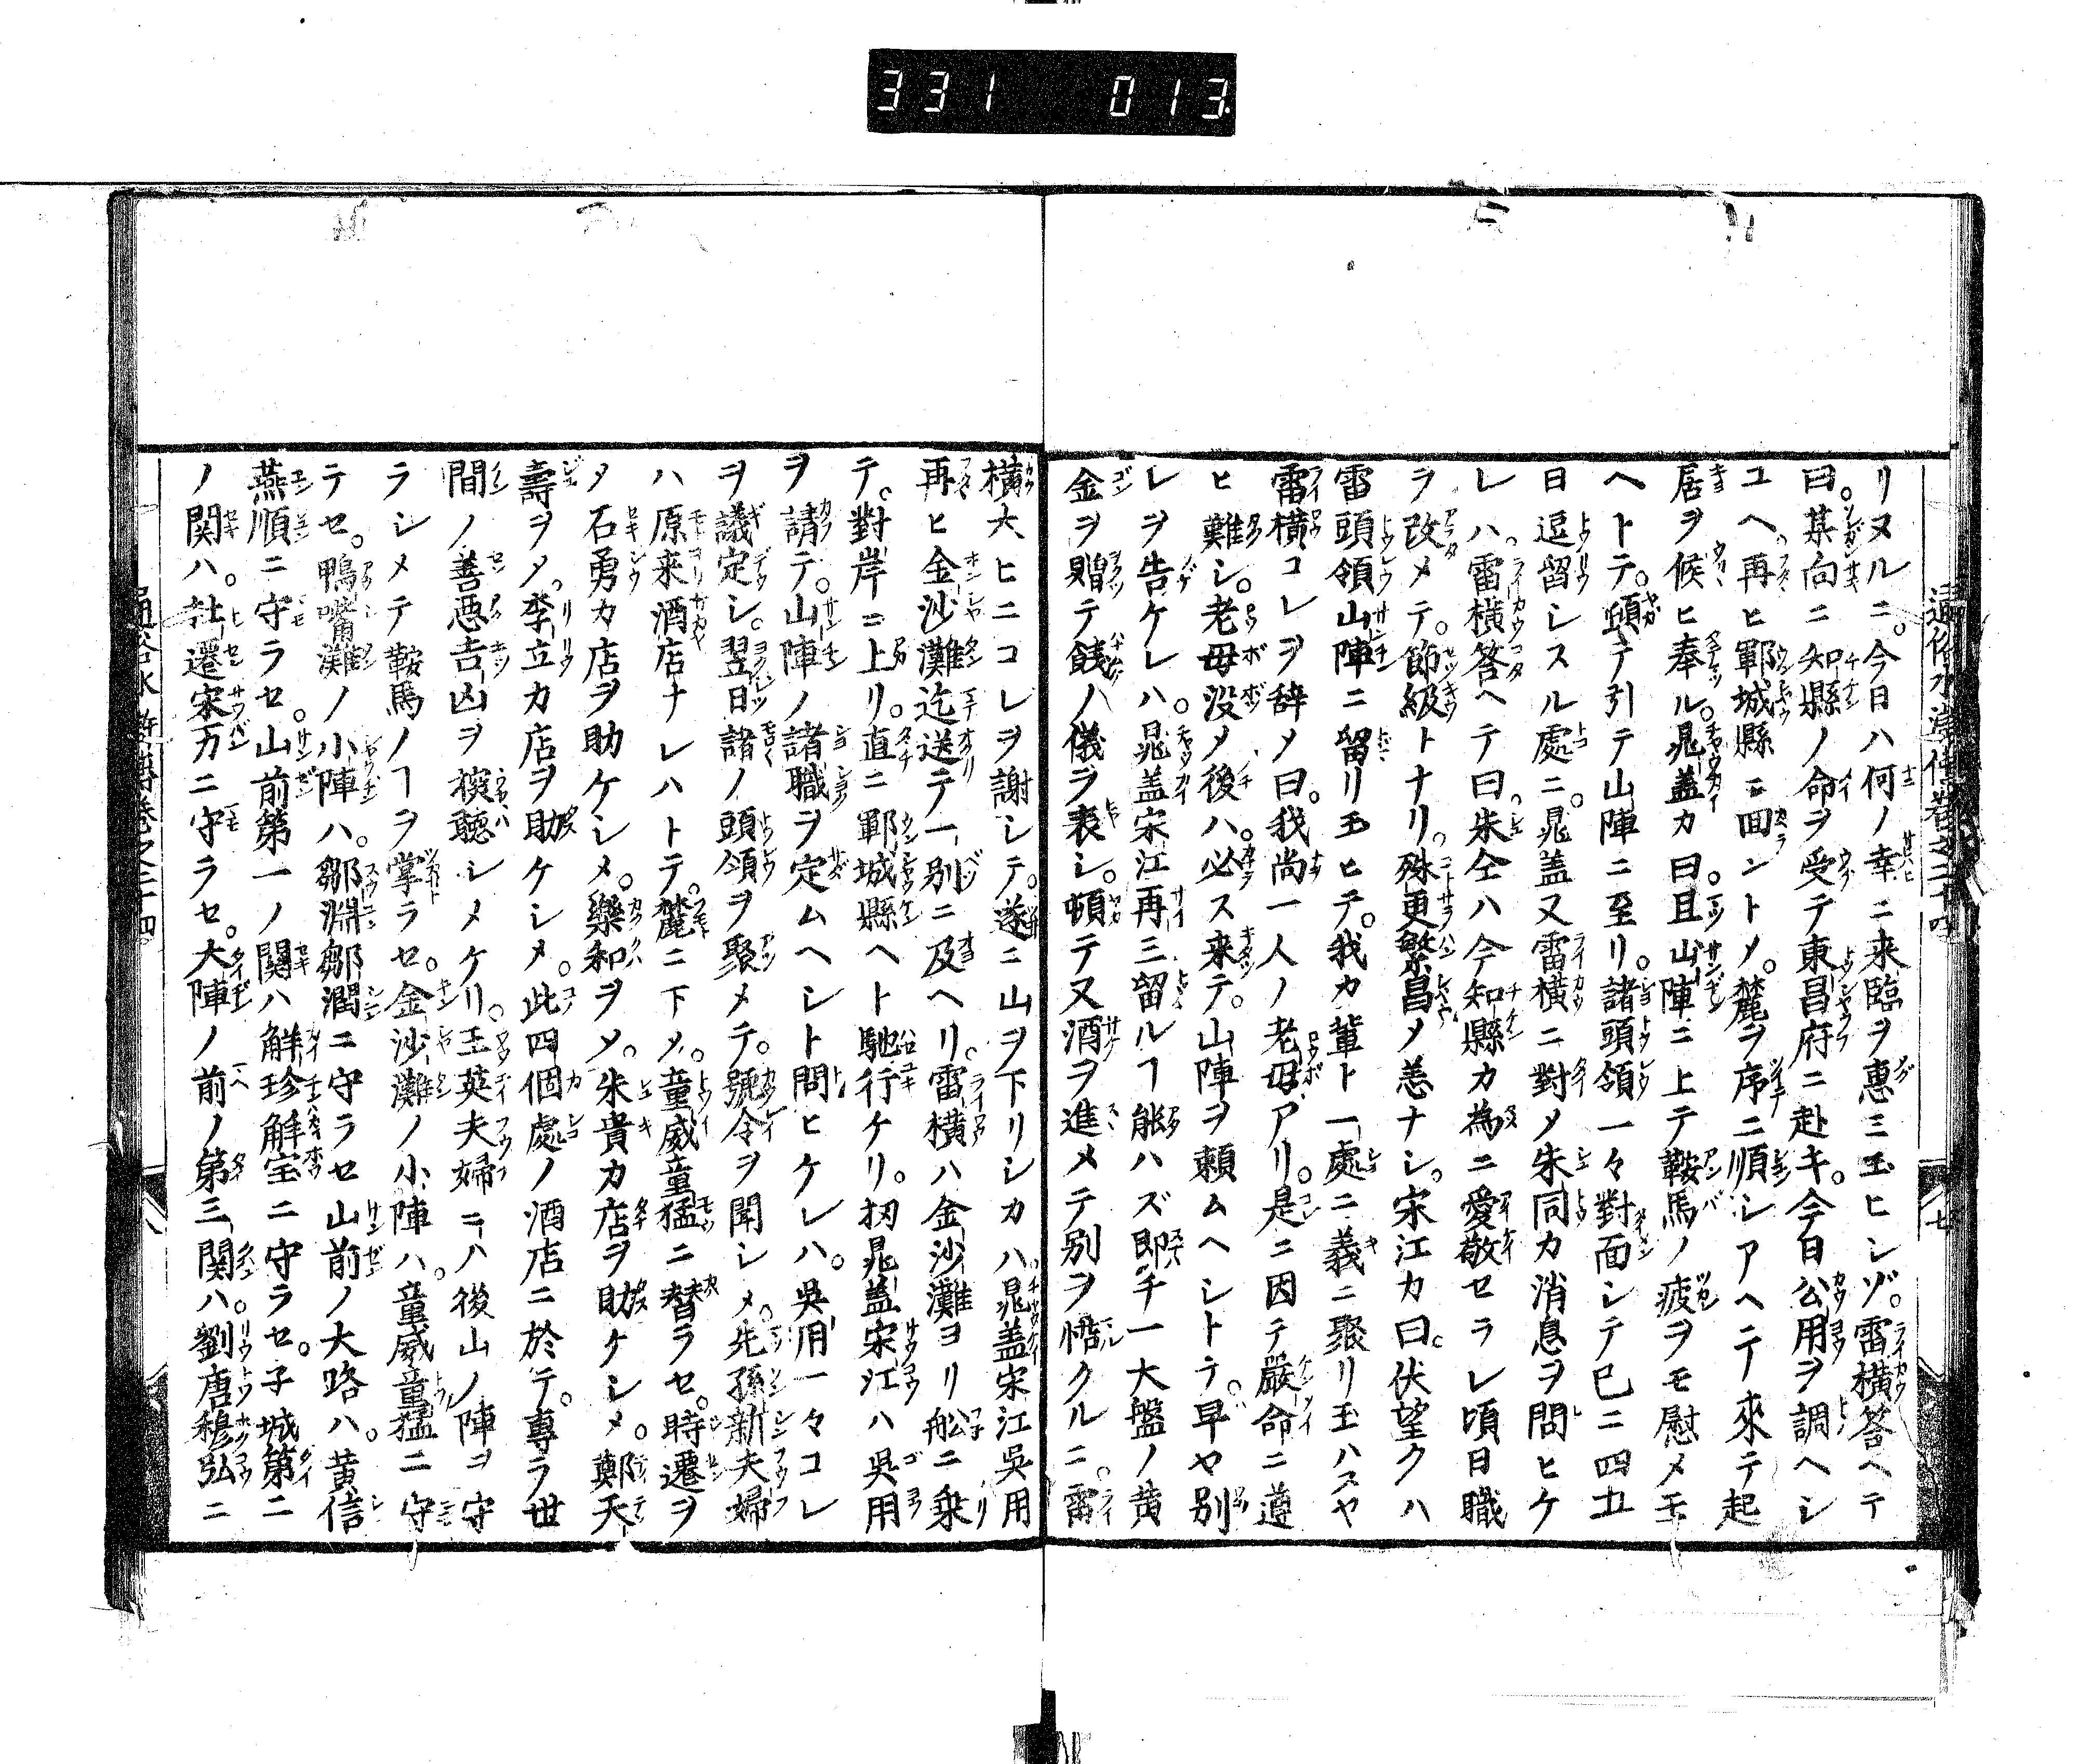 331 013
通俗水滸傳巻之二十四 七
リヌルニ。今日ハ何ノ幸ニ来臨ヲ惠ミ玉ヒシゾ。雷横答ヘテ
曰。某向ニ知縣ノ命ヲ受テ東昌府ニ赴キ。今日公用ヲ調ヘシ
ユヘ再ヒ鄆城縣ニ回ントメ。麓ヲ序ニ順シアヘテ來テ起
居ヲ候ヒ奉ル。晁盖カ曰且山陣ニ上テ鞍馬ノ疲ヲモ慰メ玉
ヘトテ。頓テ引テ山陣ニ至リ。諸頭領一々對面シテ已ニ四五
日逗留シスル處ニ。晁盖又雷横ニ對メ朱同カ消息ヲ問ヒケ
レハ。雷横答ヘテ曰。朱仝ハ今知縣カ為ニ愛敬セラレ頃日職
ヲ改メテ。節級トナリ。殊更繁昌メ恙ナシ。宋江カ曰。伏望クハ
雷頭領山陣ニ留リ玉ヒテ。我カ輩ト一處ニ義ニ聚リ玉ハスヤ
雷横コレヲ辞メ曰。我尚一人ノ老母アリ。是ニ因テ嚴命ニ遵
ヒ難シ。老母没メ後ハ。必ス来テ。山陣ヲ頼ムヘシトテ。早ヤ別
レヲ告ケレハ。晁盖宋江再三留ルヿ能ハズ即チ一大盤ノ黄
金ヲ贈テ餞ノ儀ヲ表シ。頓テ又酒ヲ進メテ別ヲ惜クルニ。雷
横大ヒニコレヲ謝シテ。遂ニ山ヲ下リシカハ。晁盖宋江吳用
再ヒ金沙灘迄送テ一別ニ及ヘリ。雷横ハ金沙灘ヨリ舩ニ乗
テ。對岸ニ上リ。直ニ鄆城縣ヘト馳行ケリ。扨晁盖宋江ハ吳用
ヲ請テ。山陣ノ諸職ヲ定ムヘシト問ヒケレハ。吳用一々コレ
ヲ議定シ。翌日諸ノ頭領ヲ聚メテ。號令ヲ聞シメ。先孫新夫婦
ハ原来酒店ナレハトテ。麓ニ下メ。童威童猛ニ替ラセ。時遷ヲ
メ石勇カ店ヲ助ケシメ。樂和ヲメ。朱貴カ店ヲ助ケシメ。鄭天
壽ヲメ。李立カ店ヲ助ケシメ。此四個處ノ酒店ニ於テ。專ラ世
間ノ善悪吉凶ヲ探聽シメケリ。王英夫婦ニハ後山ノ陣ヲ守
ラシメテ鞍馬ノヿヲ掌ラセ。金沙灘ノ小陣ハ。童威童猛ニ守
テセ。鴨嘴灘ノ小陣ハ。鄒淵鄒潤ニ守ラセ山前ノ大路ハ。黄信
燕順ニ守ラセ。山前第一ノ關ハ解珍解宝ニ守ラセ。子城第二
ノ関ハ。杜遷宋万ニ守ラセ。大陣ノ前ノ第三関ハ。劉唐穆弘ニ
八